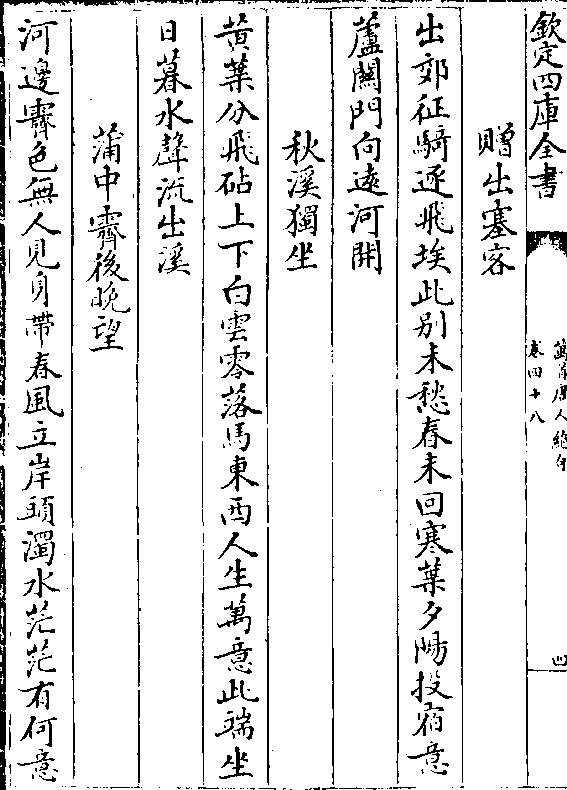 欽定四庫全書
萬首唐人絶句
卷四十八
四
贈出塞客
出郊征騎逐飛埃此别未愁春未回寒葉夕陽投宿意
蘆關門向逺河開
秋溪獨坐
黄葉分飛砧上下白雲零落馬東西人生萬意此端坐
日暮水聲流出溪
蒲中霽後晚望
河邊霽色無人見身帶春風立岸頭濁水茫茫有何意